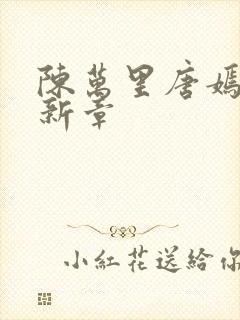 陳萬里唐嫣
新章
小紅花送給你